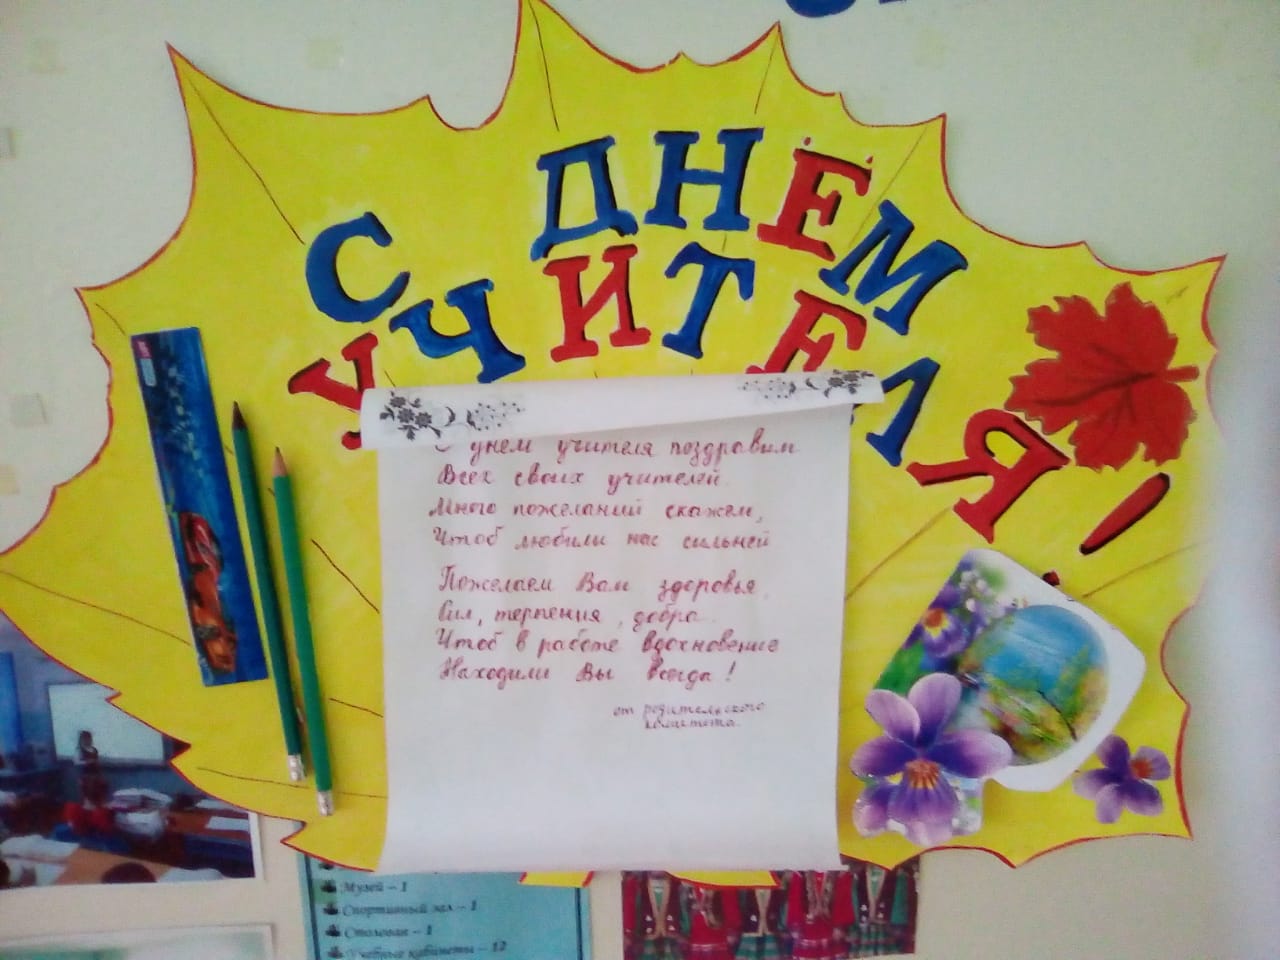 С ДНЕМ
УЧИТЕЛЯ!
С днем учителя поздравим
Всех своих учителей.
Много пожеланий скажем,
Чтоб любили нас сильней
Пожелаем Вам здоровья,
Сил, терпения, добра.
Чтоб в работе вдохновение
Находили Вы всегда!
от родительского
комитета.
Музей – 1
Спортивный зал – 1
Столовая – 1
Учебные кабинеты – 12